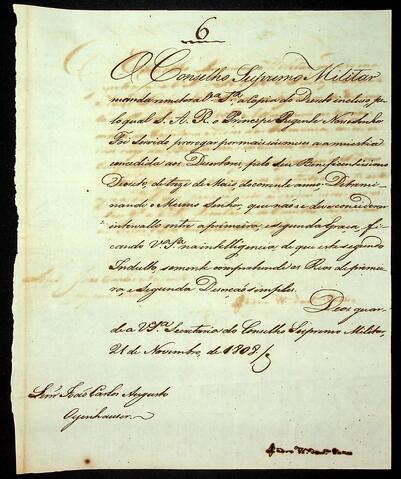 6
O Conselho Supremo Militar
manda remeter a V.ª S.ª a Copia do Decreto incluso pe
lo qual S. A. R. o Principe Regente Nosso Senhor
Foi Servido prorogar por mais seis mezes a amnistia
concedida aos Desertores pelo seu Beneficentissimo
Decreto, de treze de Maio, do corrente anno: Determi
nando o Mesmo Senhor que não se deve considerar
intervallo entre a primeira, e segunda Graça, fi
cando V.ª S.ª na intelligencia, de que este segundo
Indulto somente comprehende os Reos de primei
ra, e segunda Deserção simples.
Deos guar
de a V. S.ª Secretaria do Conselho Supremo Militar,
21 de Novembro, de 1808.
Sñr. João Carlos Augusto
Oyenhausen.